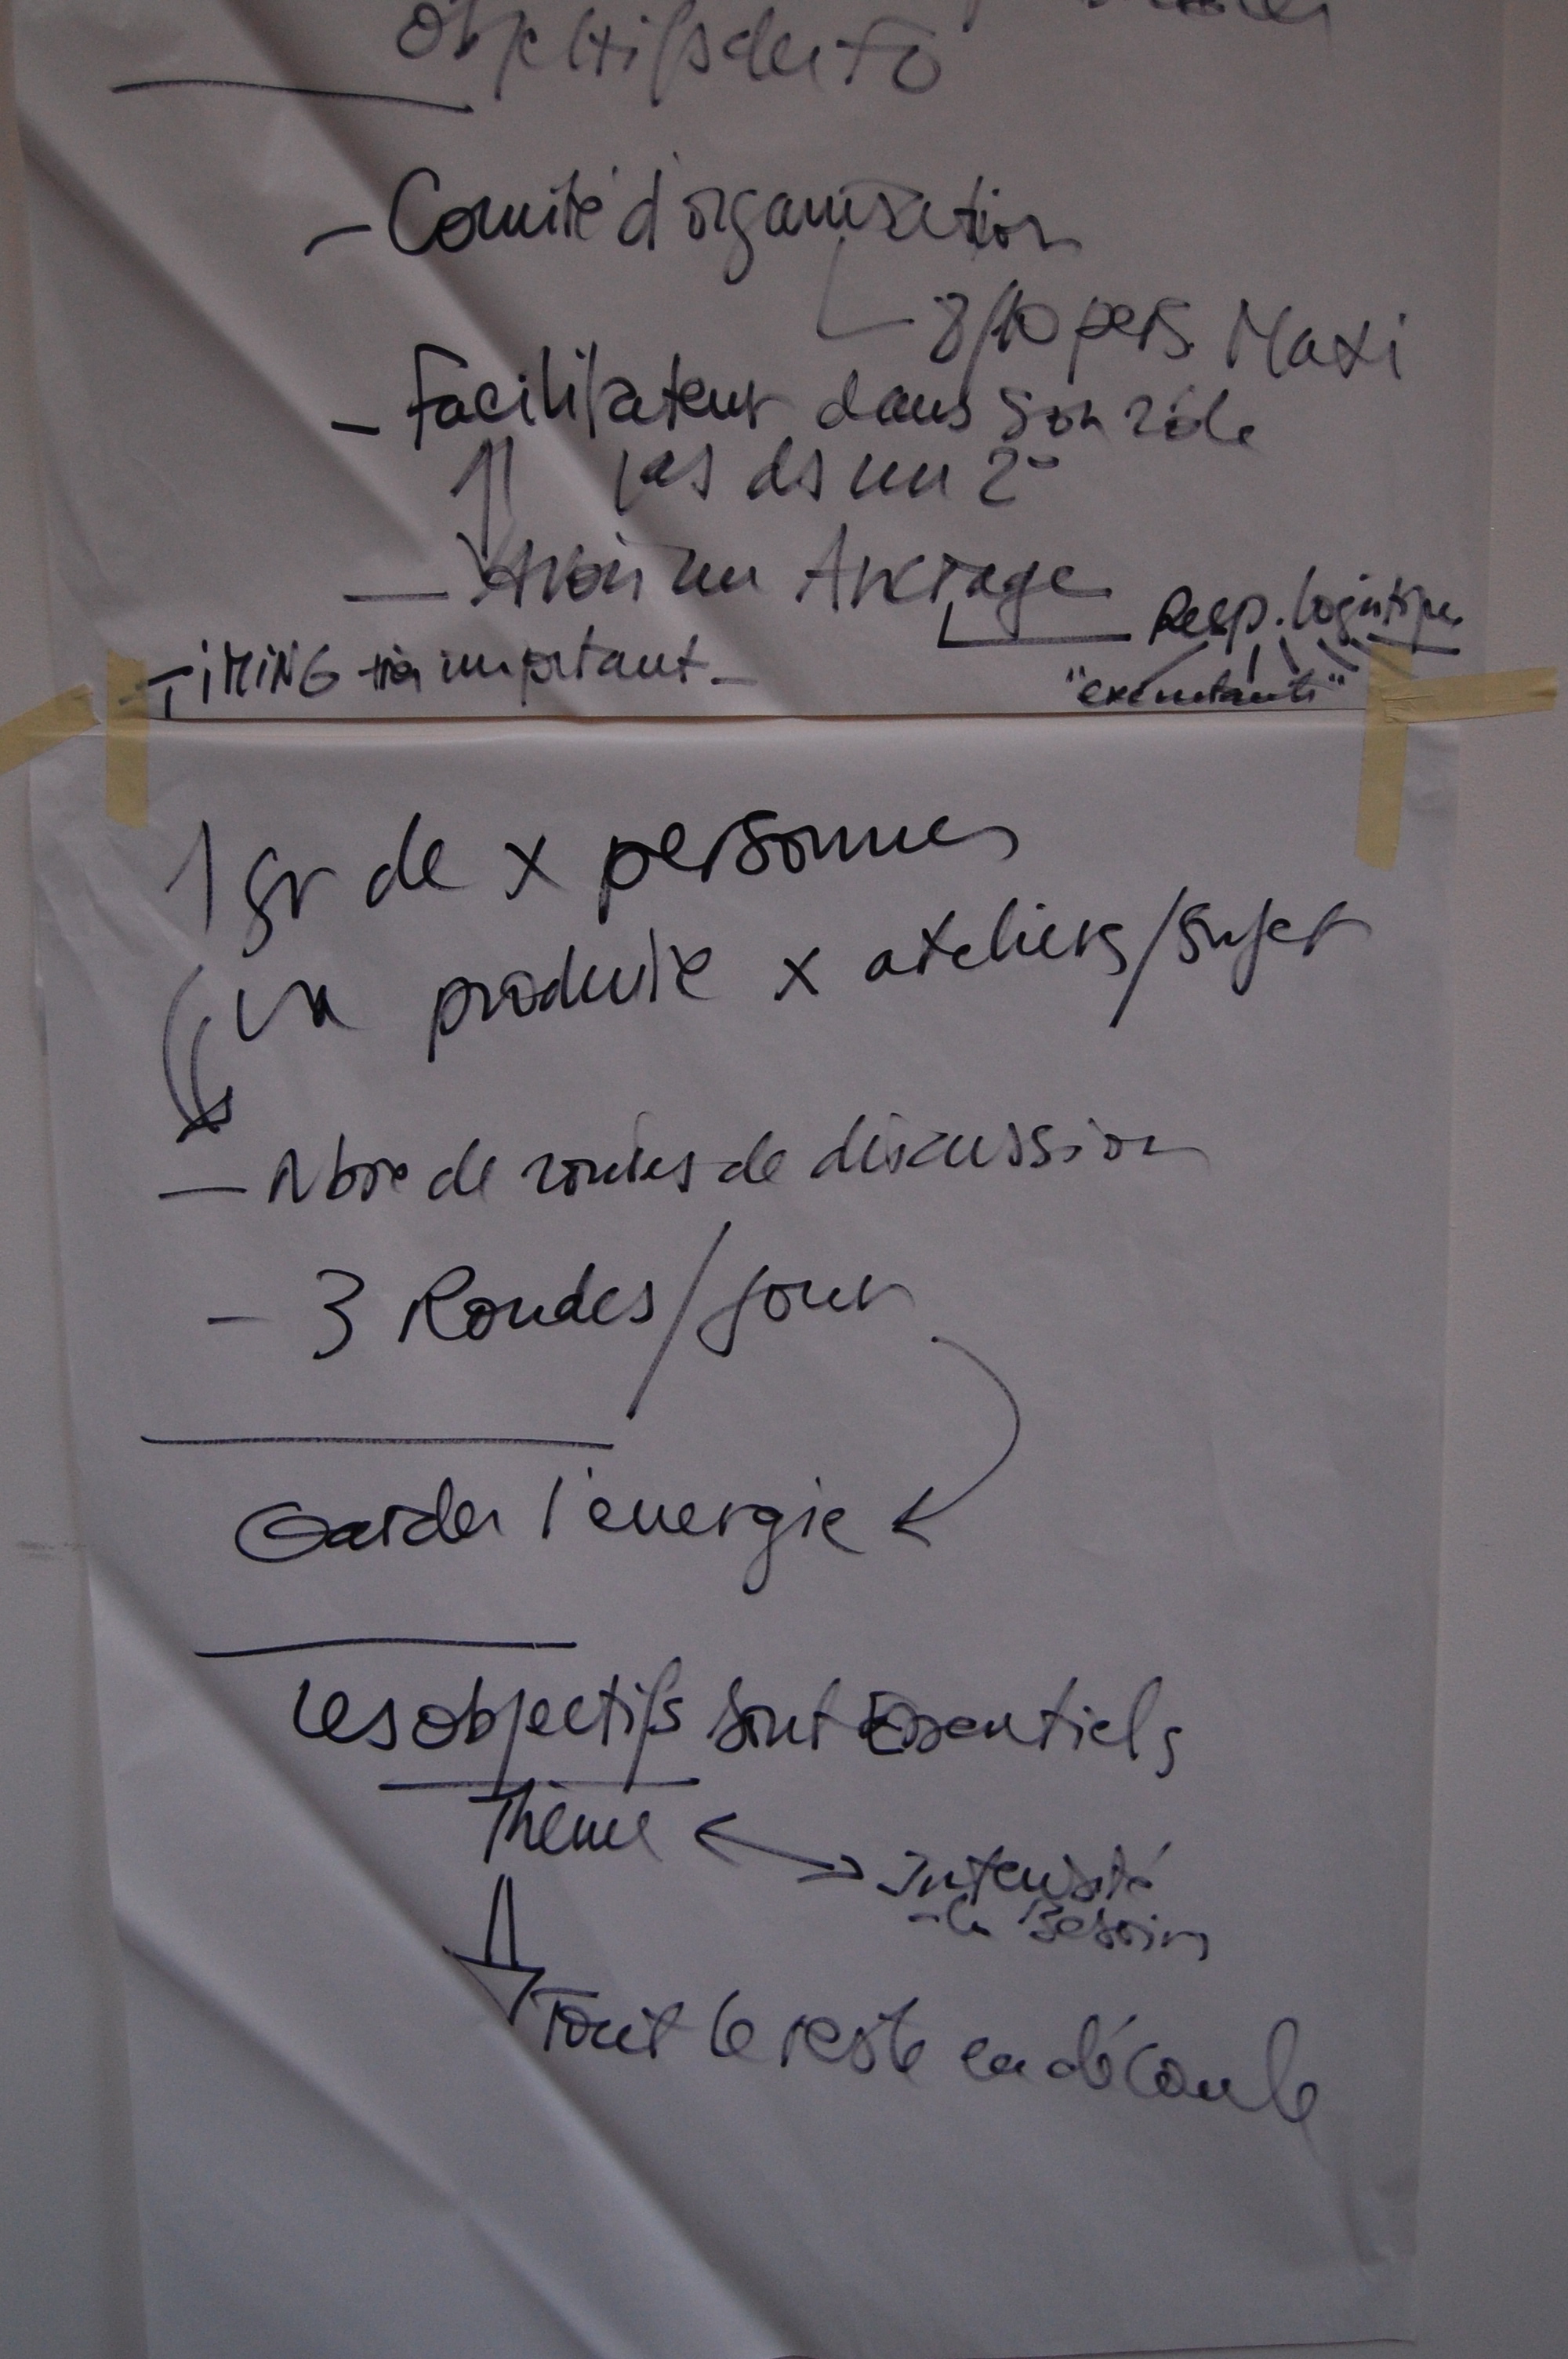 objectifs du FO
- Comité d'organisation
8/10 pers. Maxi
- Facilitateur dans son rôle
pas ds un 2e
- Avoir un Ancrage
Resp. logistique
TiMiNG très important -
"exécutants"
1 gr de x personnes
va produire x ateliers/sujet
- Nbre de rondes de discussion
- 3 Rondes/jour
Garder l'énergie
Les objectifs sont Essentiels
Thème
Intensité
Besoin
Tout le reste en découle